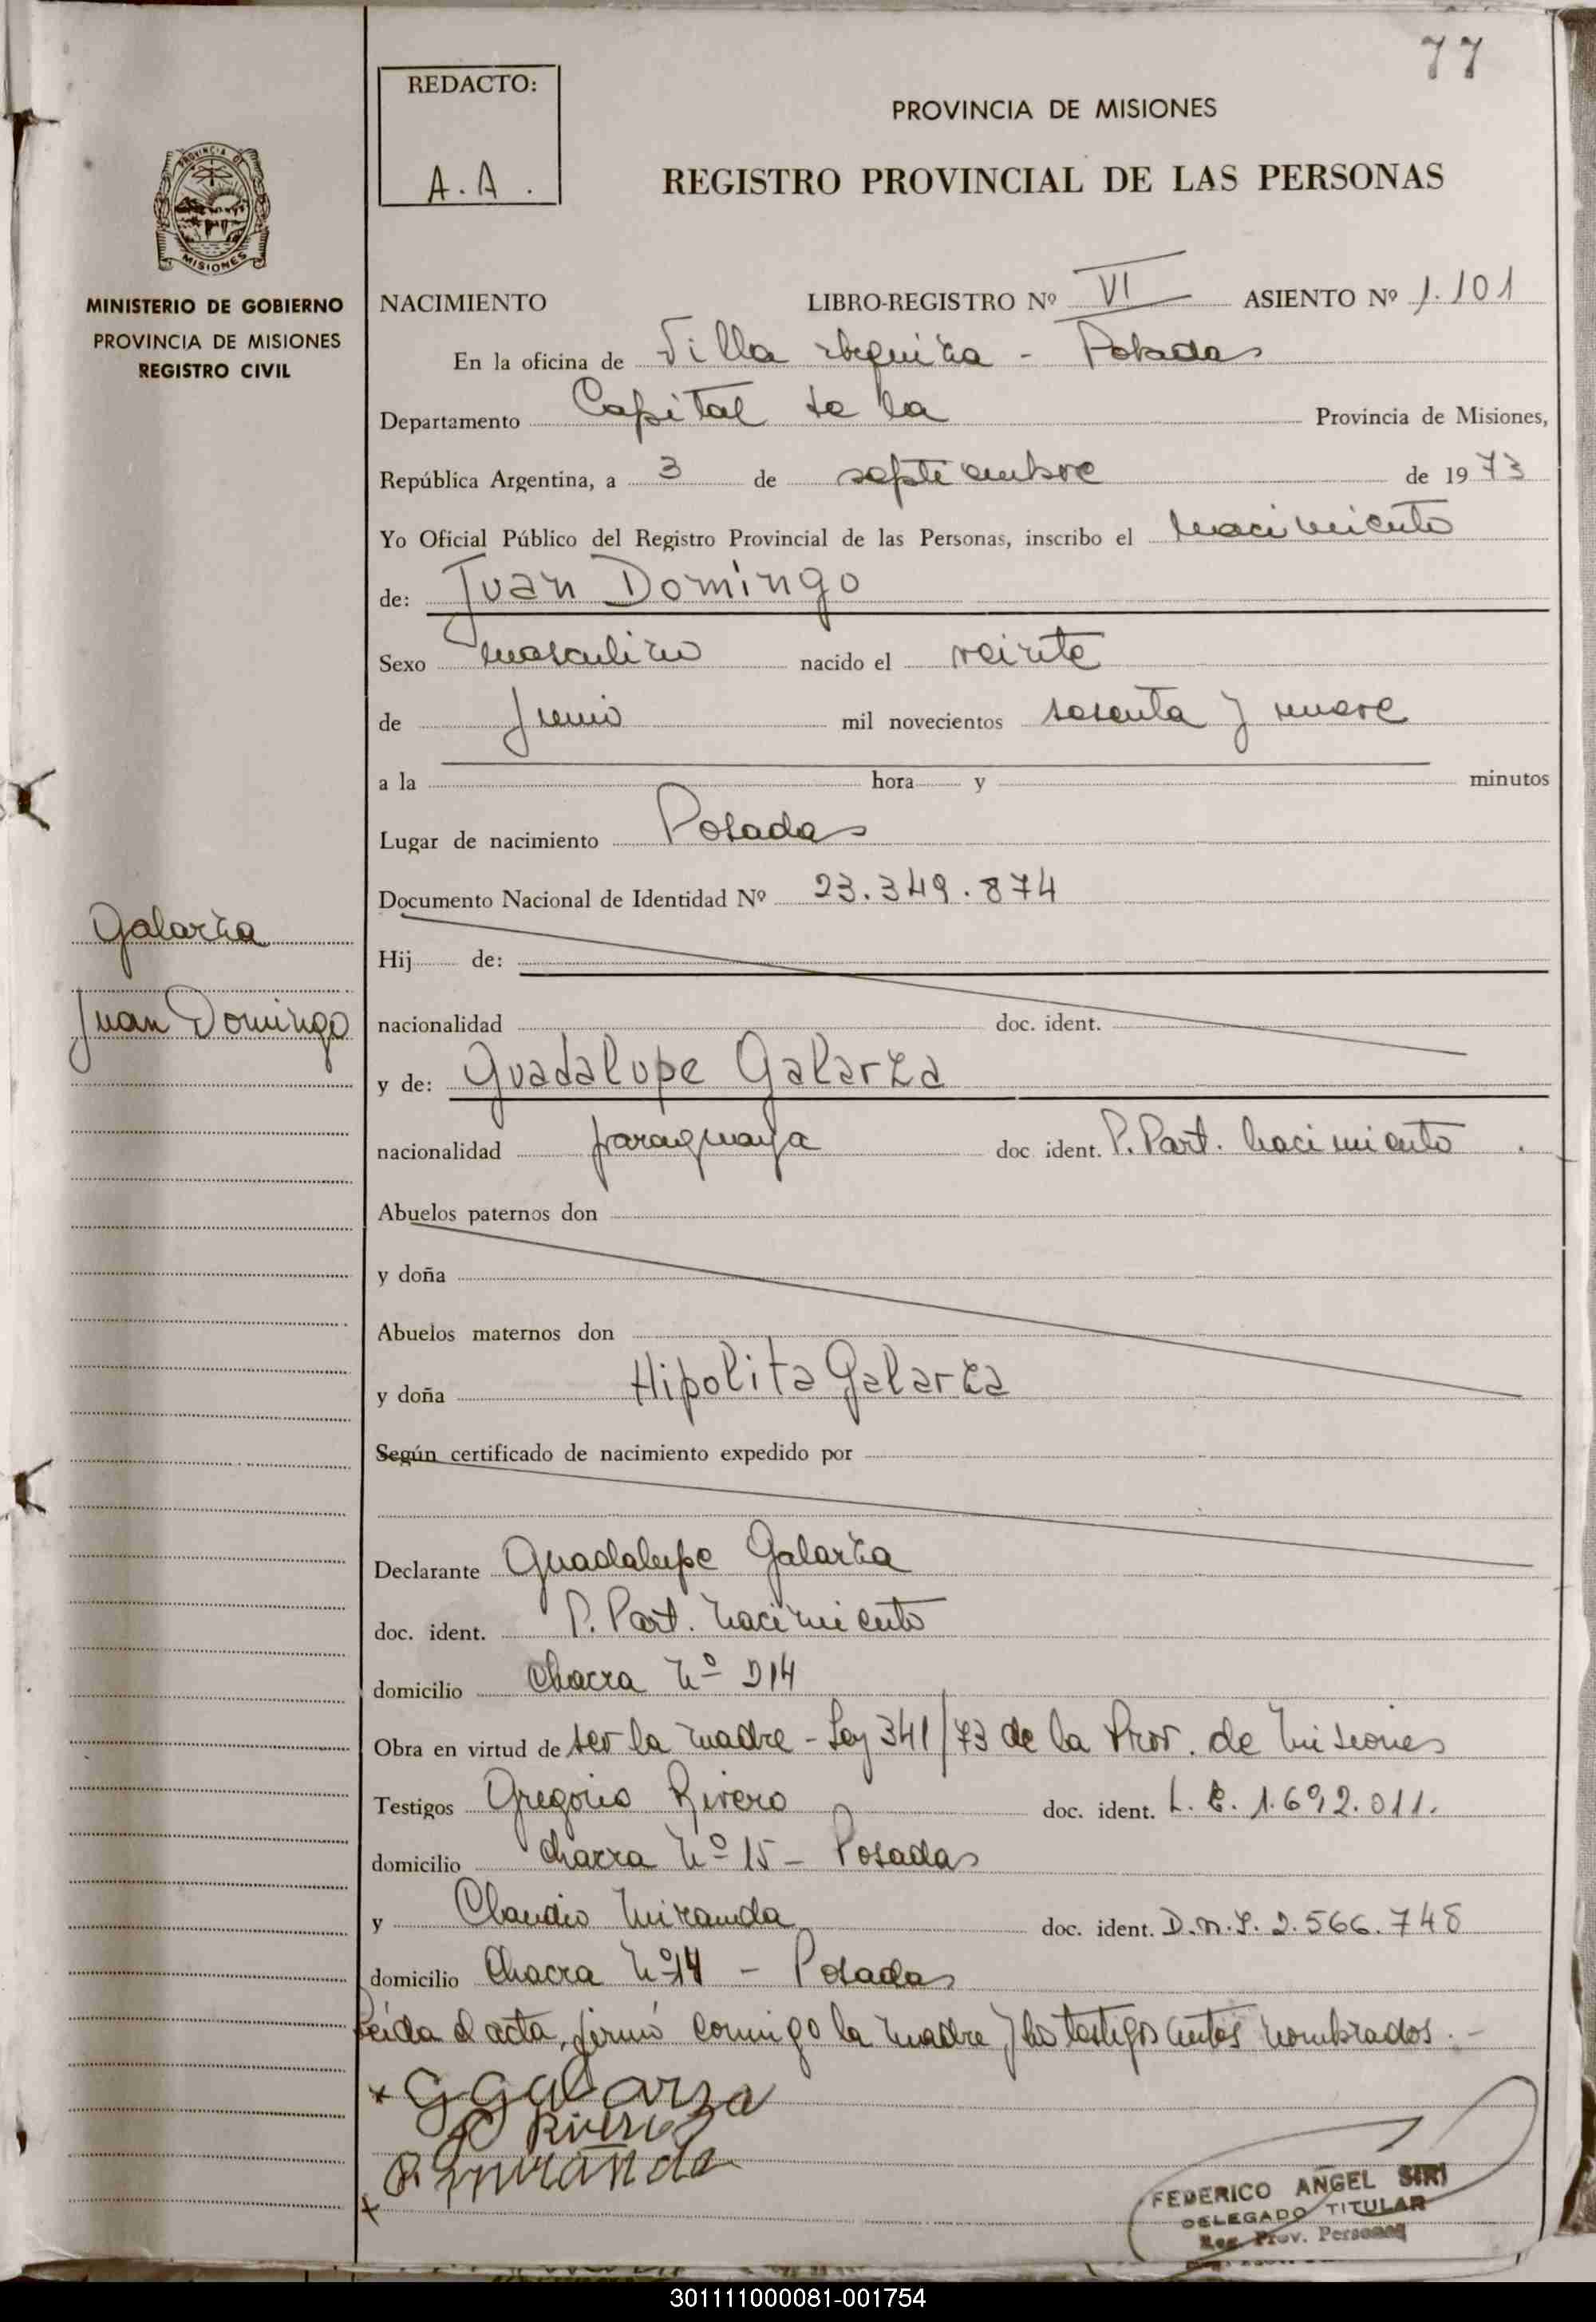 77
REDACTO:
A.A.
PROVINCIA DE MISIONES
REGISTRO PROVINCIAL DE LAS PERSONAS
PROVINCIA DE
MISIONES
MINISTERIO DE GOBIERNO
PROVINCIA DE MISIONES
REGISTRO CIVIL
NACIMIENTO LIBRO-REGISTRO Nº VI ASIENTO Nº 1.101
En la oficina de Villa Urquiza - Posadas
Departamento Capital de la Provincia de Misiones,
República Argentina, a 3 de septiembre de 1973
Yo Oficial Público del Registro Provincial de las Personas, inscribo el nacimiento
de: Juan Domingo
Sexo masculino nacido el veinte
de Junio mil novecientos sesenta y nueve
a la hora y minutos
Lugar de nacimiento Posadas
Documento Nacional de Identidad Nº 23.349.874
Galarza
Juan Domingo
Hij de:
nacionalidad doc. ident.
y de: Guadalupe Galarza
nacionalidad paraguaya doc. ident. P. Part. nacimiento.
Abuelos paternos don
y doña
Abuelos maternos don
y doña Hipolita Galarza
Según certificado de nacimiento expedido por
Declarante Guadalupe Galarza
doc. ident. P. Part. nacimiento
domicilio Chacra Nº
Obra en virtud de ser la madre - Ley 341/73 de la Prov. de Misiones
Testigos Gregorio Rivero doc. ident. L. E. 1.692.011.
domicilio Chacra Nº 15 - Posadas
y Claudio Miranda doc. ident. D.N.I. 2.566.748
domicilio Chacra Nº 14 - Posadas
Leída el acta, firmó conmigo la madre y los testigos antes nombrados. -
G Galarza
Rivero
Miranda
FEDERICO ANGEL SIRI
DELEGADO TITULAR
Reg. Prov. Personas
301111000081-001754